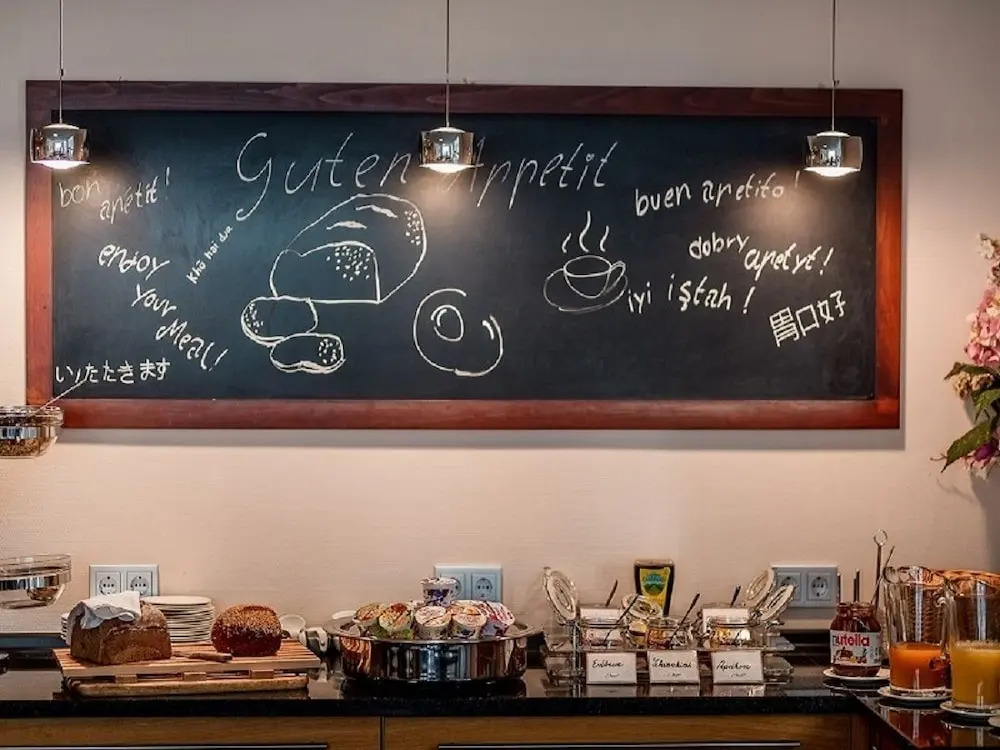 Guten Appetit
bon
apétit!
enjoy
Your
Meal!
いたたきます
buen apetito!
dobry
apetyt!
iyi iştah!
胃口好
Erdbeere
Aprikose
nutella